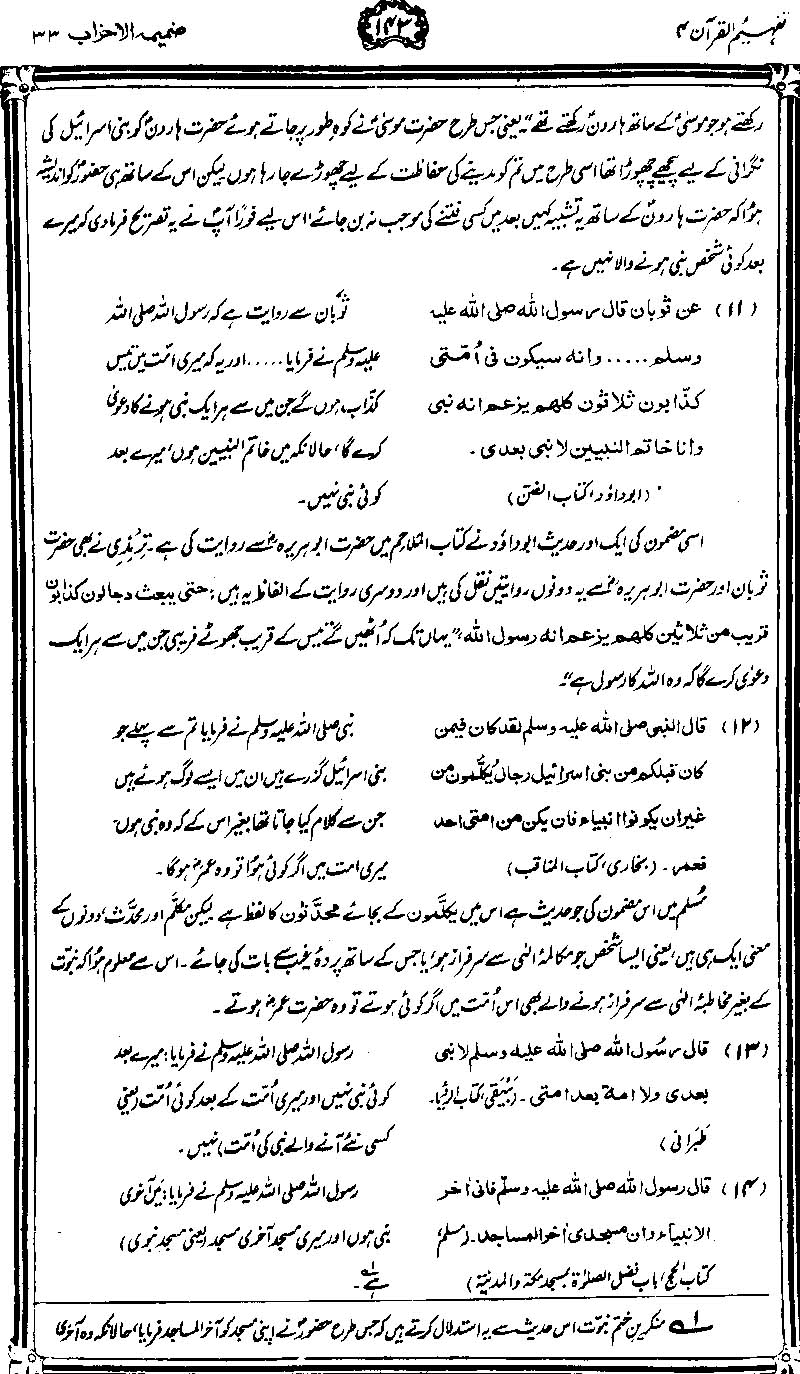 تفہیم القرآن ۴
۱۴۳
ضمیمہ الاحزاب ۳۳
رکھتے ہو جو موسیٰؑ کے ساتھ ہارونؑ رکھتے تھے" یعنی جس طرح حضرت موسیٰؑ نے کوہِ طور پر جاتے ہوئے حضرت ہارونؑ کو بنی اسرائیل کی
نگرانی کے لیے پیچھے چھوڑا تھا اسی طرح میں تم کو مدینے کی حفاظت کے لیے چھوڑے جا رہا ہوں لیکن اس کے ساتھ ہی حضورؐ کو اندیشہ
ہوا کہ حضرت ہارونؑ کے ساتھ یہ تشبیہ کہیں بعد میں کسی فتنے کی موجب نہ بن جائے، اس لیے فوراً آپؐ نے یہ تصریح فرما دی کہ میرے
بعد کوئی شخص نبی ہونے والا نہیں ہے۔
(۱۱) عن ثوبان قال رسول الله صلى الله عليه
وسلم ..... وانه سيكون فى اُمتى
كذابون ثلاثون كلهم يزعم انه نبى
وانا خاتم النبيين لا نبى بعدى۔
(ابوداؤد، کتاب الفتن)
ثوبان سے روایت ہے کہ رسول اللہ صلی اللہ
علیہ وسلم نے فرمایا ..... اور یہ کہ میری امت میں تیس
کذّاب ہوں گے جن میں سے ہر ایک نبی ہونے کا دعویٰ
کرے گا، حالانکہ میں خاتم النبیین ہوں، میرے بعد
کوئی نبی نہیں۔
اسی مضمون کی ایک اور حدیث ابوداؤد نے کتاب الملاحم میں حضرت ابوہریرہؓ سے روایت کی ہے۔ ترمذی نے بھی حضرت
ثوبان اور حضرت ابوہریرہؓ سے یہ دونوں روایتیں نقل کی ہیں اور دوسری روایت کے الفاظ یہ ہیں: حتى يبعث دجالون كذابون
قريب من ثلاثين كلهم يزعم انه رسول الله، "یہاں تک کہ اُٹھیں گے تیس کے قریب جھوٹے فریبی جن میں سے ہر ایک
دعوٰی کرے گا کہ وہ اللہ کا رسول ہے"۔
(۱۲) قال النبى صلى الله عليه وسلم لقد كان فيمن
كان قبلكم من بنى اسرائيل رجال يُكلَّمون من
غير ان يكونوا انبياء فان يكن من امتى احد
فعمر۔ (بخاری، کتاب المناقب)
نبی صلی اللہ علیہ وسلم نے فرمایا تم سے پہلے جو
بنی اسرائیل گزرے ہیں ان میں ایسے لوگ ہوئے ہیں
جن سے کلام کیا جاتا تھا بغیر اس کے کہ وہ نبی ہوں۔
میری امت میں اگر کوئی ہوا تو وہ عمرؓ ہوگا۔
مُسلم میں اس مضمون کی جو حدیث ہے اس میں یکلّمون کے بجائے محدَّثون کا لفظ ہے لیکن مکلَّم اور محدَّث، دونوں کے
معنی ایک ہی ہیں، یعنی ایسا شخص جو مکالمۂ الٰہی سے سرفراز ہو، یا جس کے ساتھ پردۂ غیب سے بات کی جائے۔ اس سے معلوم ہوا کہ نبوّت
کے بغیر مخاطبۂ الٰہی سے سرفراز ہونے والے بھی اس اُمت میں اگر کوئی ہوتے تو وہ حضرت عمرؓ ہوتے۔
(۱۳) قال رسُول الله صلى الله عليه وسلم لا نبى
بعدى ولا امة بعد امتى۔ (بیہقی، کتاب الرؤیا۔
طبرانی)
رسول اللہ صلی اللہ علیہ وسلم نے فرمایا: میرے بعد
کوئی نبی نہیں اور میری اُمت کے بعد کوئی اُمت (یعنی
کسی نئے آنے والے نبی کی اُمت) نہیں۔
(۱۴) قال رسول الله صلى الله عليه وسلم فانى اٰخر
الانبياء وان مسجدى اٰخر المساجد۔ (مسلم،
کتاب الحج، باب فضل الصلوٰۃ بمسجد مکۃ والمدینۃ)
رسول اللہ صلی اللہ علیہ وسلم نے فرمایا: میں آخری
نبی ہوں اور میری مسجد آخری مسجد (یعنی مسجد نبوی)
ہے۔ ۱؎
۱؎ منکرین ختم نبوت اس حدیث سے یہ استدلال کرتے ہیں کہ جس طرح حضورؐ نے اپنی مسجد کو آخر المساجد فرمایا، حالانکہ وہ آخری